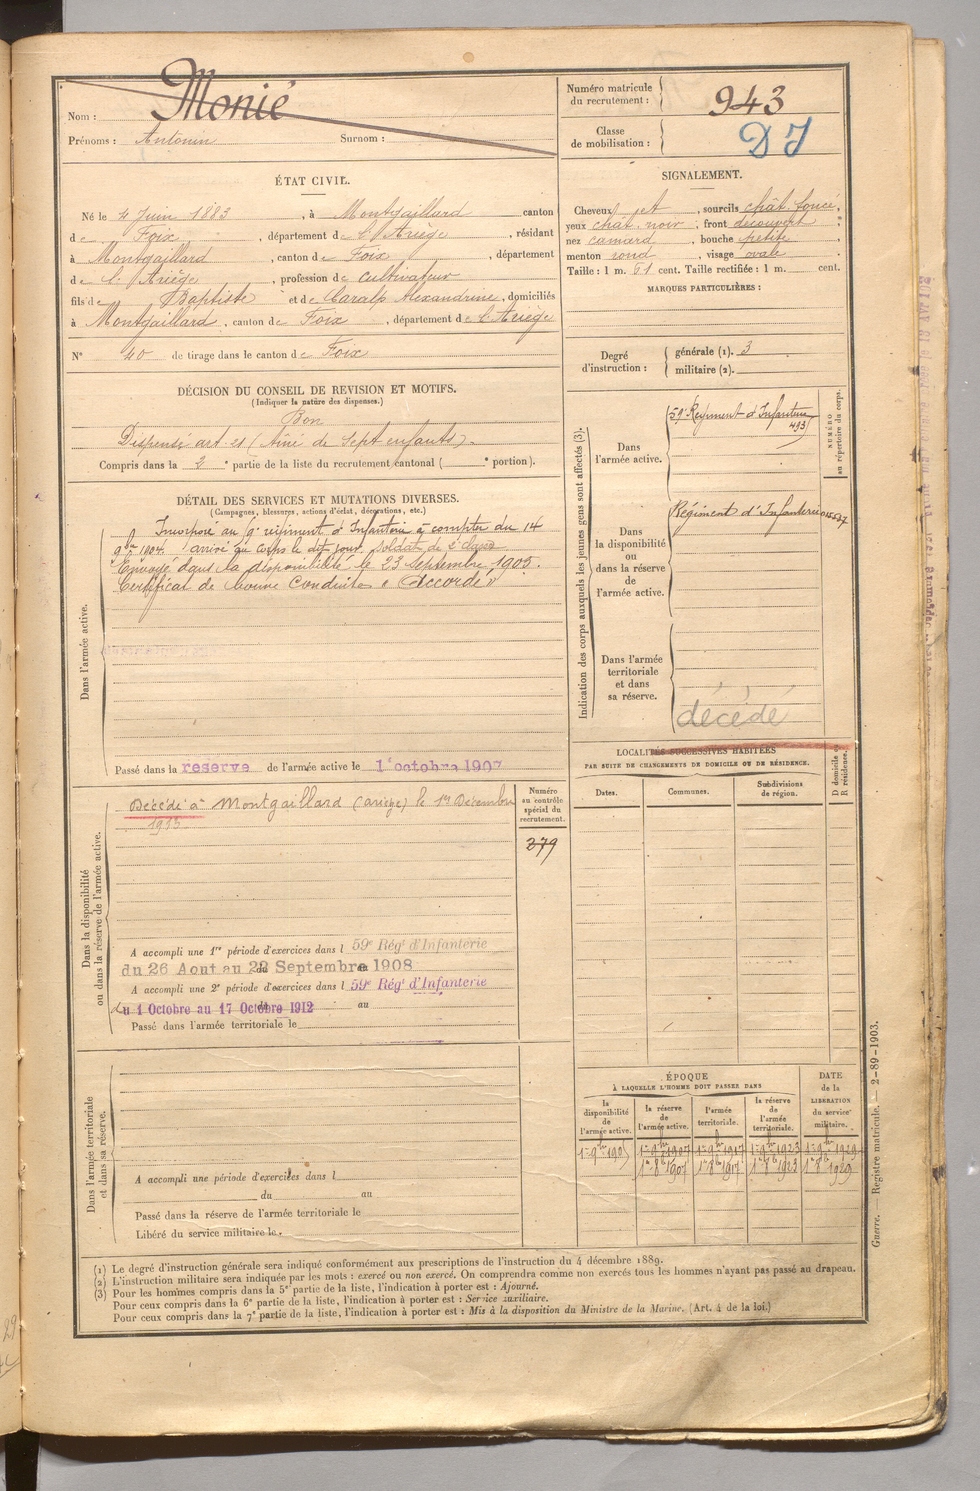 Nom : Monié
Prénoms : Antonin Surnom :
Numéro matricule du recrutement : 943
Classe de mobilisation : DJ
ÉTAT CIVIL.
Né le 4 Juin 1883, à Montgaillard canton
de Foix, département de l'Ariège, résidant
à Montgaillard, canton de Foix, département
de l'Ariège, profession de cultivateur
fils de Baptiste et de Caralp Alexandrine, domiciliés
à Montgaillard, canton de Foix, département de l'Ariège
N° 40 de tirage dans le canton de Foix
SIGNALEMENT.
Cheveux et, sourcils chât. foncé,
yeux chât. noir; front découvert
nez camard, bouche petite
menton rond, visage ovale
Taille : 1 m. 61 cent. Taille rectifiée : 1 m. cent.
MARQUES PARTICULIÈRES :
Degré d'instruction : générale (1). 3
militaire (2).
DÉCISION DU CONSEIL DE REVISION ET MOTIFS.
(Indiquer la nature des dispenses.)
Bon
Dispensé art. 21 (Aîné de Sept enfants).
Compris dans la 2e partie de la liste du recrutement cantonal ( e portion).
DÉTAIL DES SERVICES ET MUTATIONS DIVERSES.
(Campagnes, blessures, actions d'éclat, décorations, etc.)
Dans l'armée active.
Incorporé au régiment d'Infanterie à compter du 14
9bre 1904. arrivé au corps le dit jour, soldat de 2e classe
Envoyé dans la disponibilité le 23 Septembre 1905.
Certificat de bonne Conduite « Accordé »
Passé dans la réserve de l'armée active le 1er octobre 1907
Indication des corps auxquels les jeunes gens sont affectés (3).
NUMÉRO au répertoire du corps.
Dans l'armée active.
59e Régiment d'Infanterie
493
Dans la disponibilité ou dans la réserve de l'armée active.
Régiment d'Infanterie
Dans l'armée territoriale et dans sa réserve.
décédé
LOCALITÉS SUCCESSIVES HABITÉES
PAR SUITE DE CHANGEMENTS DE DOMICILE OU DE RÉSIDENCE.
Dates.
Communes.
Subdivisions de région.
D domicile ou R résidence.
Dans la disponibilité ou dans la réserve de l'armée active.
Décédé à Montgaillard (ariège) le Décembre
Numéro au contrôle spécial du recrutement.
279
A accompli une 1re période d'exercices dans l 59e Régt d'Infanterie
du 26 Aout au Septembre 1908
A accompli une 2e période d'exercices dans l 59e Régt d'Infanterie
du 1 Octobre au 17 Octobre 1912 au
Passé dans l'armée territoriale le
Dans l'armée territoriale et dans sa réserve.
A accompli une période d'exercices dans l
du au
Passé dans la réserve de l'armée territoriale le
Libéré du service militaire le.
ÉPOQUE
À LAQUELLE L'HOMME DOIT PASSER DANS
la disponibilité de l'armée active.
la réserve de l'armée active.
l'armée territoriale.
la réserve de l'armée territoriale.
DATE de la LIBÉRATION du service militaire.
1er 9bre 1905 1er 9bre 1907 1er 9bre 1917 1er 9bre 1923 1er 9bre 1929
1er 8bre 1907 1er 8bre 1917 1er 8bre 1923 1er 8bre 1929
Guerre. — Registre matricule. — 2-89-1903.
(1) Le degré d'instruction générale sera indiqué conformément aux prescriptions de l'instruction du 4 décembre 1889.
(2) L'instruction militaire sera indiquée par les mots : exercé ou non exercé. On comprendra comme non exercés tous les hommes n'ayant pas passé au drapeau.
(3) Pour les hommes compris dans la 5e partie de la liste, l'indication à porter est : Ajourné.
Pour ceux compris dans la 6e partie de la liste, l'indication à porter est : Service auxiliaire.
Pour ceux compris dans la 7e partie de la liste, l'indication à porter est : Mis à la disposition du Ministre de la Marine. (Art. 4 de la loi.)